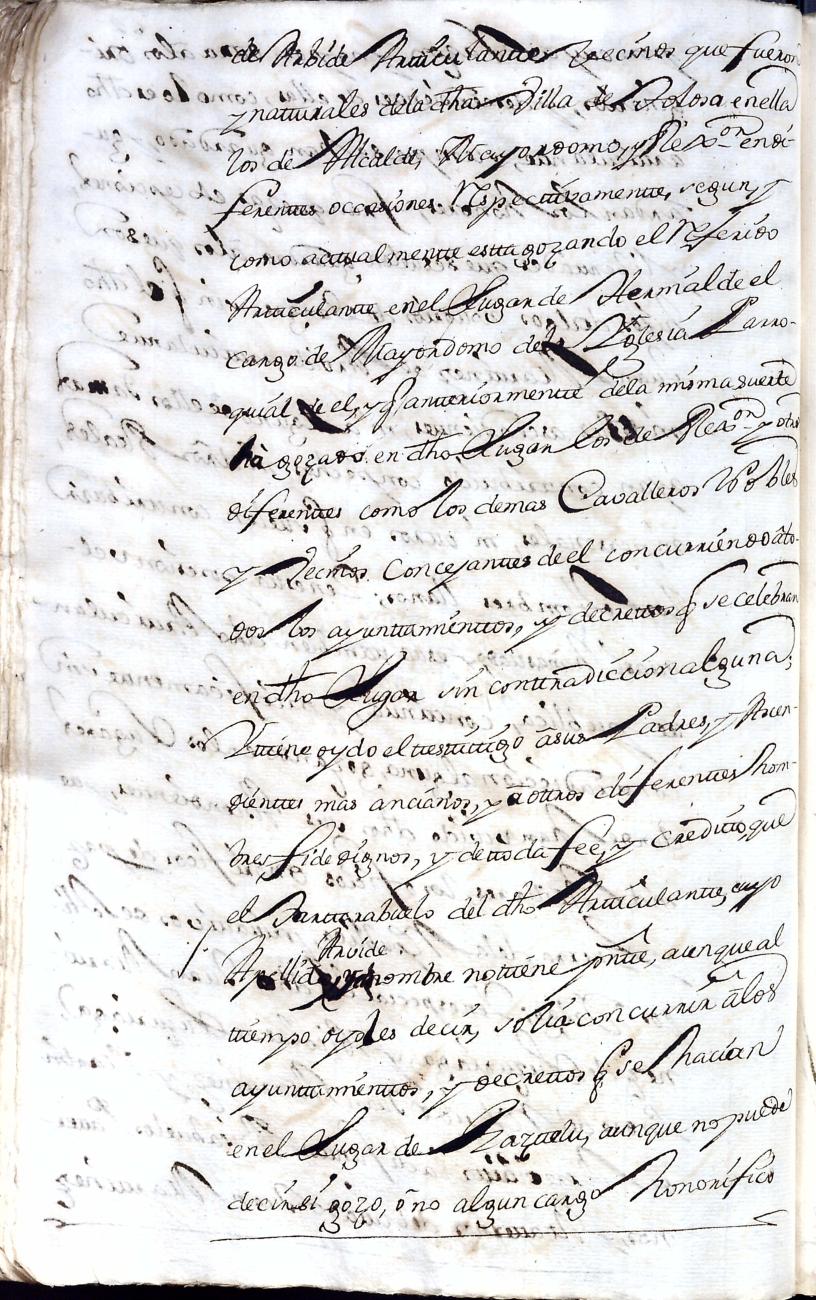 de Arbide Articulantes Vecinos que fueron
y natturales dela dha Villa de Tolosa en ella
los de Alcalde, Mayordomo, y Rexor en di-
ferentes occasiones respectivamente, segun, y
como actualmente estta gozando el referido
Articulante en el Lugar de Hernialde el
cargo de Mayordomo dela Yglesia Parro-
quial de el, y q anteriormente dela misma suerte
ha gozado en dho Lugar los de Rexor y otros
diferentes como los demas Cavalleros Nobles
y Vecinos Concejantes de el concurriendo âto-
dos los ayunttamienttos, y decrettos q se celebran
en dho Lugar sin conttradiccion alguna;
Y ttiene oydo el testtigo âsus Padres, y Ascen-
dienttes mas ancianos, y â ottros diferenttes hom-
bres fidedignos, y de ttoda fee, y creditto, que
el Tarttarabuelo del dho Articulante, cuyo
Apellido Arbide nombre no ttiene pntte, aunque al
ttiempo oyoles decir, solia concurrir â los
ayunttamienttos, y decrettos q se hacian
en el Lugar de, aunque no puede
decir si gozo, ô no algun cargo honorifico